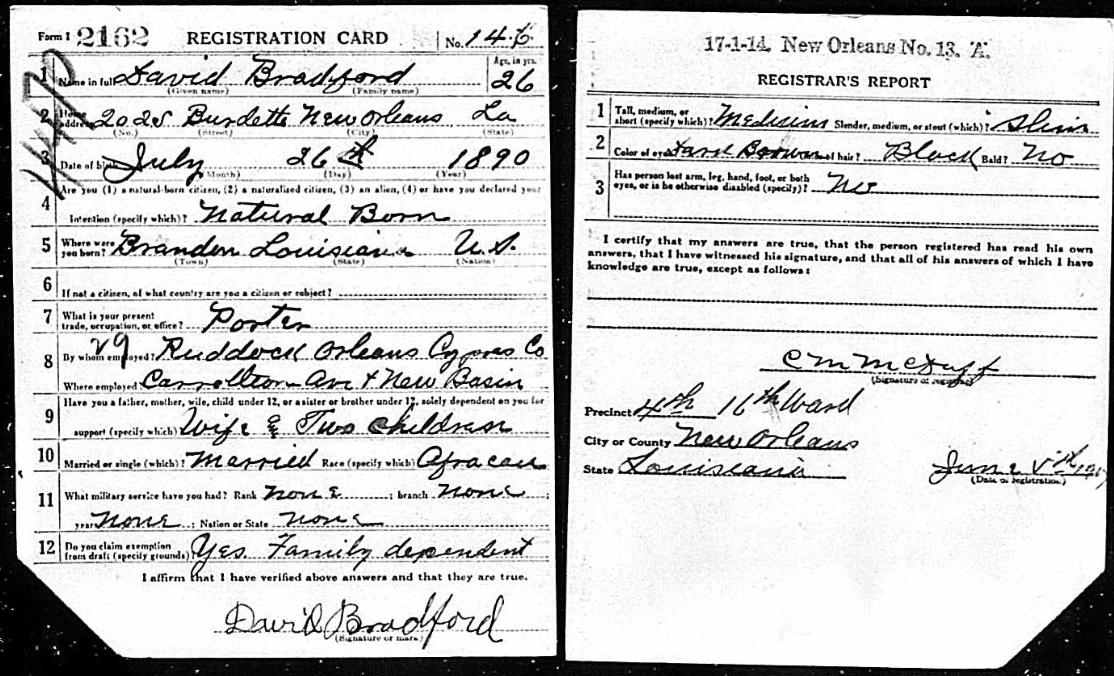 Form 1 2162 REGISTRATION CARD No. 146
1 Name in full David Bradford Age, in yrs. 26
(Given name) (Family name)
2 Home address 2025 Burdette New Orleans La
(No.) (Street) (City) (State)
3 Date of birth July 26th 1890
(Month) (Day) (Year)
Are you (1) a natural-born citizen, (2) a naturalized citizen, (3) an alien, (4) or have you declared your
4 intention (specify which)? Natural Born
5 Where were you born? Brandon Louisiana U.S.
(Town) (State) (Nation)
6 If not a citizen, of what country are you a citizen or subject?
7 What is your present trade, occupation, or office? Porter
8 By whom employed? Ruddock Orleans Cypres Co
Where employed Carrollton Ave & New Basin
9 Have you a father, mother, wife, child under 12, or a sister or brother under 12, solely dependent on you for
support (specify which) Wife & Two Children
10 Married or single (which)? Married Race (specify which) Afracan
11 What military service have you had? Rank none ; branch none ;
years none ; Nation or State none
12 Do you claim exemption from draft (specify grounds) Yes. Family dependent
I affirm that I have verified above answers and that they are true.
David Bradford
(Signature or mark)
17-1-14. New Orleans No. 13. 'A'.
REGISTRAR'S REPORT
1 Tall, medium, or short (specify which)? Medium Slender, medium, or stout (which)? Slim
2 Color of eyes? Dark Brown of hair? Black Bald? No
3 Has person lost arm, leg, hand, foot, or both eyes, or is he otherwise disabled (specify)? No
I certify that my answers are true, that the person registered has read his own
answers, that I have witnessed his signature, and that all of his answers of which I have
knowledge are true, except as follows:
C M McDuff
(Signature of registrar)
Precinct 4th 16th Ward
City or County New Orleans
State Louisiana June 5th 1917
(Date of registration)